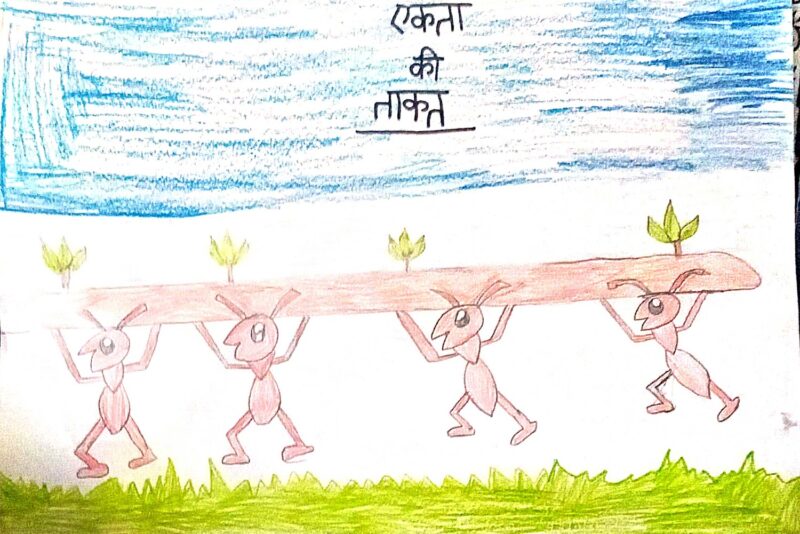 एकता
की
ताकत